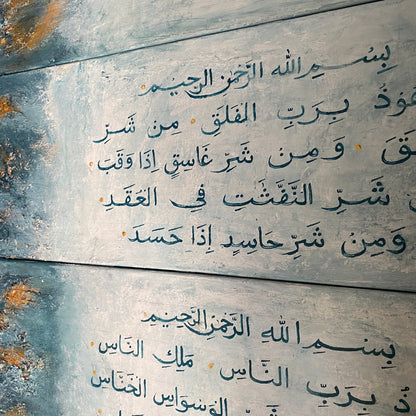 بِسْمِ اللهِ الرَّحْمٰنِ الرَّحِيْمِ
بِرَبِّ الفَلَقِ مِن شَرِّ
وَمِن شَرِّ غَاسِقٍ إِذَا وَقَبَ
شَرِّ النَّفّٰثٰتِ فِي العُقَدِ
وَمِنْ شَرِّ حَاسِدٍ إِذَا حَسَدَ
بِسْمِ اللهِ الرَّحْمٰنِ الرَّحِيْمِ
بِرَبِّ النَّاسِ مَلِكِ النَّاسِ
شَرِّ الوَسْوَاسِ الخَنَّاسِ